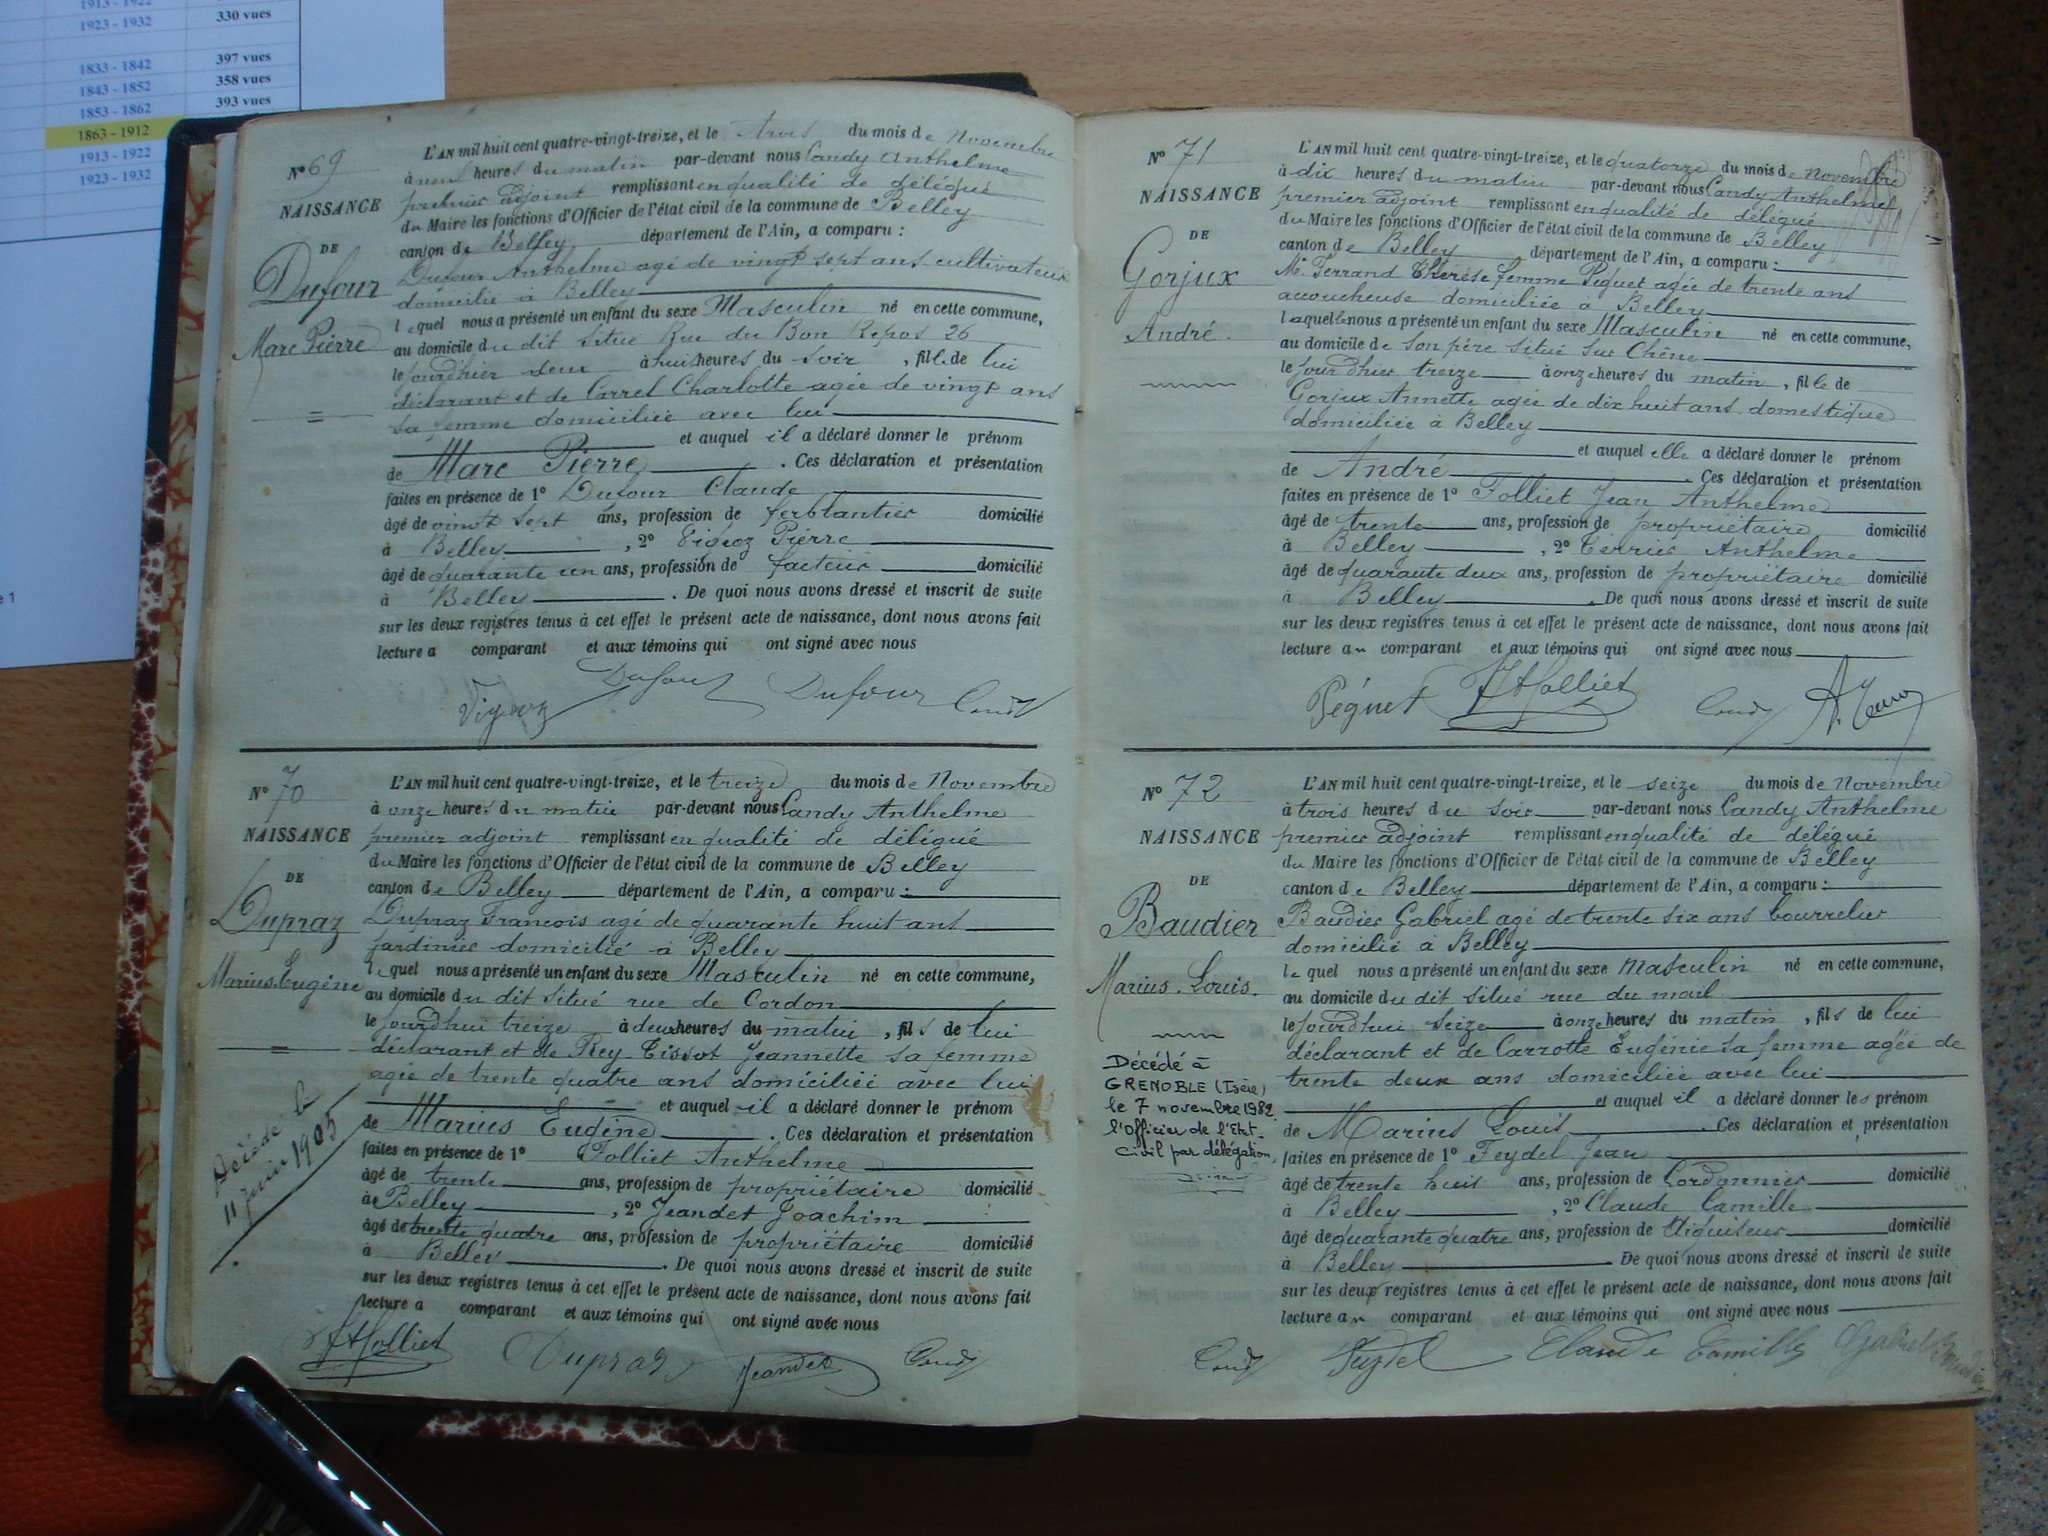 1913 - 1922
1923 - 1932 330 vues
1833 - 1842 397 vues
1843 - 1852 358 vues
1853 - 1862 393 vues
1863 - 1912
1913 - 1922
1923 - 1932
N° 69
NAISSANCE
DE
Dufour
Marc Pierre
L'AN mil huit cent quatre-vingt-treize, et le trois du mois de Novembre
à heures du matin par-devant nous Candy Anthelme
premier adjoint remplissant en qualité de délégué
du Maire les fonctions d'Officier de l'état civil de la commune de Belley
canton de Belley département de l'Ain, a comparu :
Dufour Anthelme agé de vingt sept ans cultivateur
domicilié à Belley
lequel nous a présenté un enfant du sexe Masculin né en cette commune,
au domicile du dit situé Rue du Bon Repos 26
le jourdhier deux à huit heures du soir, fils de lui
déclarant et de Carrel Charlotte agée de vingt ans
sa femme domiciliée avec lui
et auquel il a déclaré donner le prénom
de Marc Pierre. Ces déclaration et présentation
faites en présence de 1° Dufour Claude
âgé de vingt sept ans, profession de ferblantier domicilié
à Belley, 2° Pierre
âgé de quarante un ans, profession de facteur domicilié
à Belley. De quoi nous avons dressé et inscrit de suite
sur les deux registres tenus à cet effet le présent acte de naissance, dont nous avons fait
lecture a comparant et aux témoins qui ont signé avec nous
Dufour Dufour Candy
N° 70
NAISSANCE
DE
Dupraz
Marius Eugène
Décédé le
11 juin 1905
L'AN mil huit cent quatre-vingt-treize, et le treize du mois de Novembre
à onze heures du matin par-devant nous Candy Anthelme
premier adjoint remplissant en qualité de délégué
du Maire les fonctions d'Officier de l'état civil de la commune de Belley
canton de Belley département de l'Ain, a comparu :
Dupraz François agé de quarante huit ans
jardinier domicilié à Belley
lequel nous a présenté un enfant du sexe Masculin né en cette commune,
au domicile du dit situé rue de Cordon
le jourdhui treize à deux heures du matin, fils de lui
déclarant et de Rey-Tissot Jeannette sa femme
agée de trente quatre ans domiciliée avec lui
et auquel il a déclaré donner le prénom
de Marius Eugène. Ces déclaration et présentation
faites en présence de 1° Folliet Anthelme
âgé de trente ans, profession de propriétaire domicilié
à Belley, 2° Jeandet Joachim
âgé de trente quatre ans, profession de propriétaire domicilié
à Belley. De quoi nous avons dressé et inscrit de suite
sur les deux registres tenus à cet effet le présent acte de naissance, dont nous avons fait
lecture a comparant et aux témoins qui ont signé avec nous
Folliet Dupraz Jeandet Candy
N° 71
NAISSANCE
DE
Gorjux
André.
L'AN mil huit cent quatre-vingt-treize, et le quatorze du mois de Novembre
à dix heures du matin par-devant nous Candy Anthelme
premier adjoint remplissant en qualité de délégué
du Maire les fonctions d'Officier de l'état civil de la commune de Belley
canton de Belley département de l'Ain, a comparu :
Ferrand Thérèse femme Piquet agée de trente ans
accoucheuse domiciliée à Belley
laquelle nous a présenté un enfant du sexe Masculin né en cette commune,
au domicile de son père situé sur Chêne
le jourdhier treize à onze heures du matin, fil de
Gorjux Annette agée de dix huit ans domestique
domiciliée à Belley
et auquel elle a déclaré donner le prénom
de André. Ces déclaration et présentation
faites en présence de 1° Folliet Jean Anthelme
âgé de trente ans, profession de propriétaire domicilié
à Belley, 2° Terrier Anthelme
âgé de quarante deux ans, profession de propriétaire domicilié
à Belley. De quoi nous avons dressé et inscrit de suite
sur les deux registres tenus à cet effet le présent acte de naissance, dont nous avons fait
lecture au comparant et aux témoins qui ont signé avec nous
Péguet Folliet Candy
N° 72
NAISSANCE
DE
Baudier
Marius. Louis.
Décédé à
GRENOBLE (Isère)
le 7 novembre 1982
l'Officier de l'Etat-
civil par délégation,
L'AN mil huit cent quatre-vingt-treize, et le seize du mois de Novembre
à trois heures du soir par-devant nous Candy Anthelme
premier adjoint remplissant en qualité de délégué
du Maire les fonctions d'Officier de l'état civil de la commune de Belley
canton de Belley département de l'Ain, a comparu :
Baudier Gabriel agé de trente six ans bourrelier
domicilié à Belley
lequel nous a présenté un enfant du sexe Masculin né en cette commune,
au domicile du dit situé rue du mail
le jourdhui seize à onze heures du matin, fils de lui
déclarant et de Carrotte Eugénie sa femme agée de
trente deux ans domiciliée avec lui
et auquel il a déclaré donner les prénom
de Marius Louis. Ces déclaration et présentation
faites en présence de 1° Feydel Jean
âgé de trente huit ans, profession de Cordonnier domicilié
à Belley, 2° Claude Camille
âgé de quarante quatre ans, profession de Aiguiseur domicilié
à Belley. De quoi nous avons dressé et inscrit de suite
sur les deux registres tenus à cet effet le présent acte de naissance, dont nous avons fait
lecture au comparant et aux témoins qui ont signé avec nous
Candy Feydel Claude Camille Gabriel Baudier